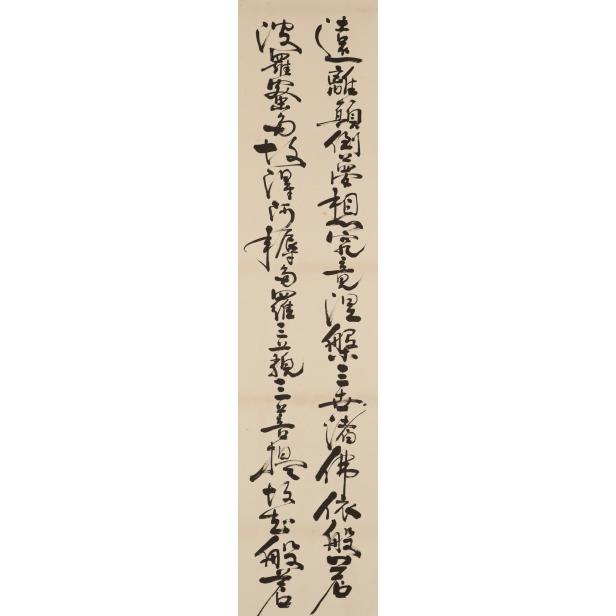 遠離顛倒夢想究竟涅槃三世諸佛依般若
波羅蜜多故得阿耨多羅三藐三菩提故知般若